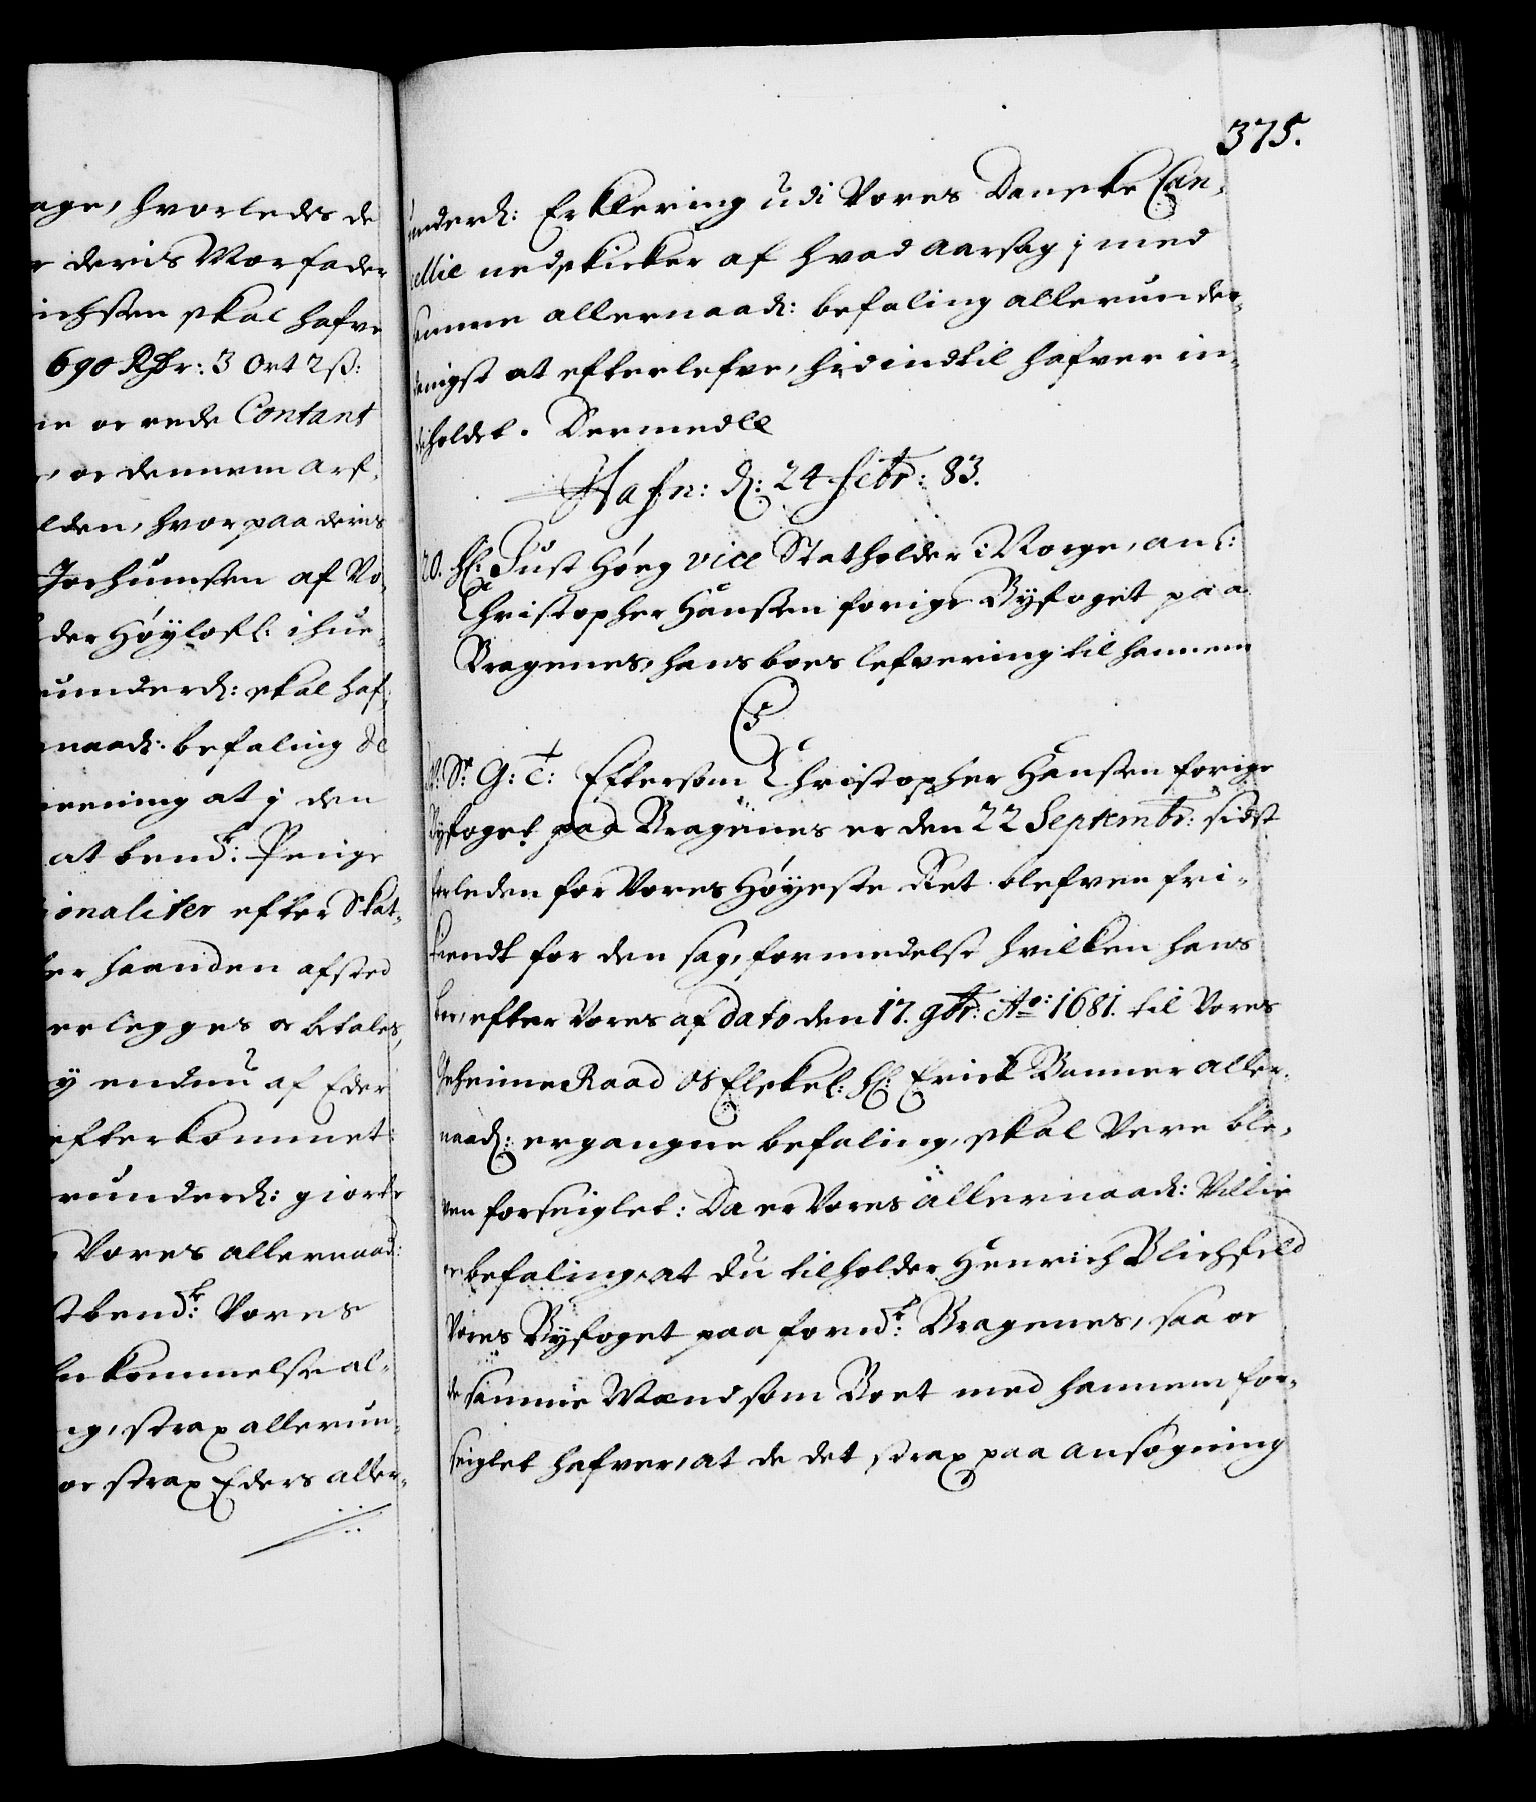 375.
age, hvorledes de
deris Morfader
ichsen skal hafve
690 Rdr: 3 Ort 2 ß:
oc rede Contant
oc dennem arf-
lden, hvor paa deris
Jochumsen af Vo-
der Høylofl: ihue-
underd: skal haf-
naad: befaling &c
meening at j den
at bemd.te Penge
ionaliter efter Skat-
er haanden afsted
erlegges oc betales,
y endnu af Eder
efterkommet:
runderd: giorte
Vores allernaad:
bemd.te Vores
kommelse al-
ng, strax allerun-
oc strax Eders aller-
underd: Erklering udi Vores Danske Can-
cellie nedskicker af hvad aarsag j med
samme allernaad: befaling allerunder-
danigst at efterlefve, hidindtil hafver in-
deholdet. Dermed &c
Hafn: d: 24 Febr: 83.
20. Hr: Just Høeg vice Statholder i Norge, anl:
Christopher Hansen forige Byfoget paa
Bragenes, hans boes lefvering til hannem
C5
V. S: G: T: Eftersom Christopher Hansen forige
Byfoget paa Bragenes er den 22 Septembr: sidst
forleden for Vores Høyeste Ret blefven fri-
kiendt for den sag, formedelst hvilken hans
boe, efter Vores af dato den 17. 9br: Ao: 1681. til Vores
Geheime Raad Os Elskel: Hr: Erick Banner aller-
naad: ergangne befaling, skal Vere ble-
ven forseiglet: Da er Vores allernaad: Villie
oc befaling, at du tilholder Henrich Blichfeld
Vores Byfoget paa formd.te Bragenes, saa oc
de samme Mænd som Boet med hannem for-
seiglet hafver, at de det strax paa ansøgning